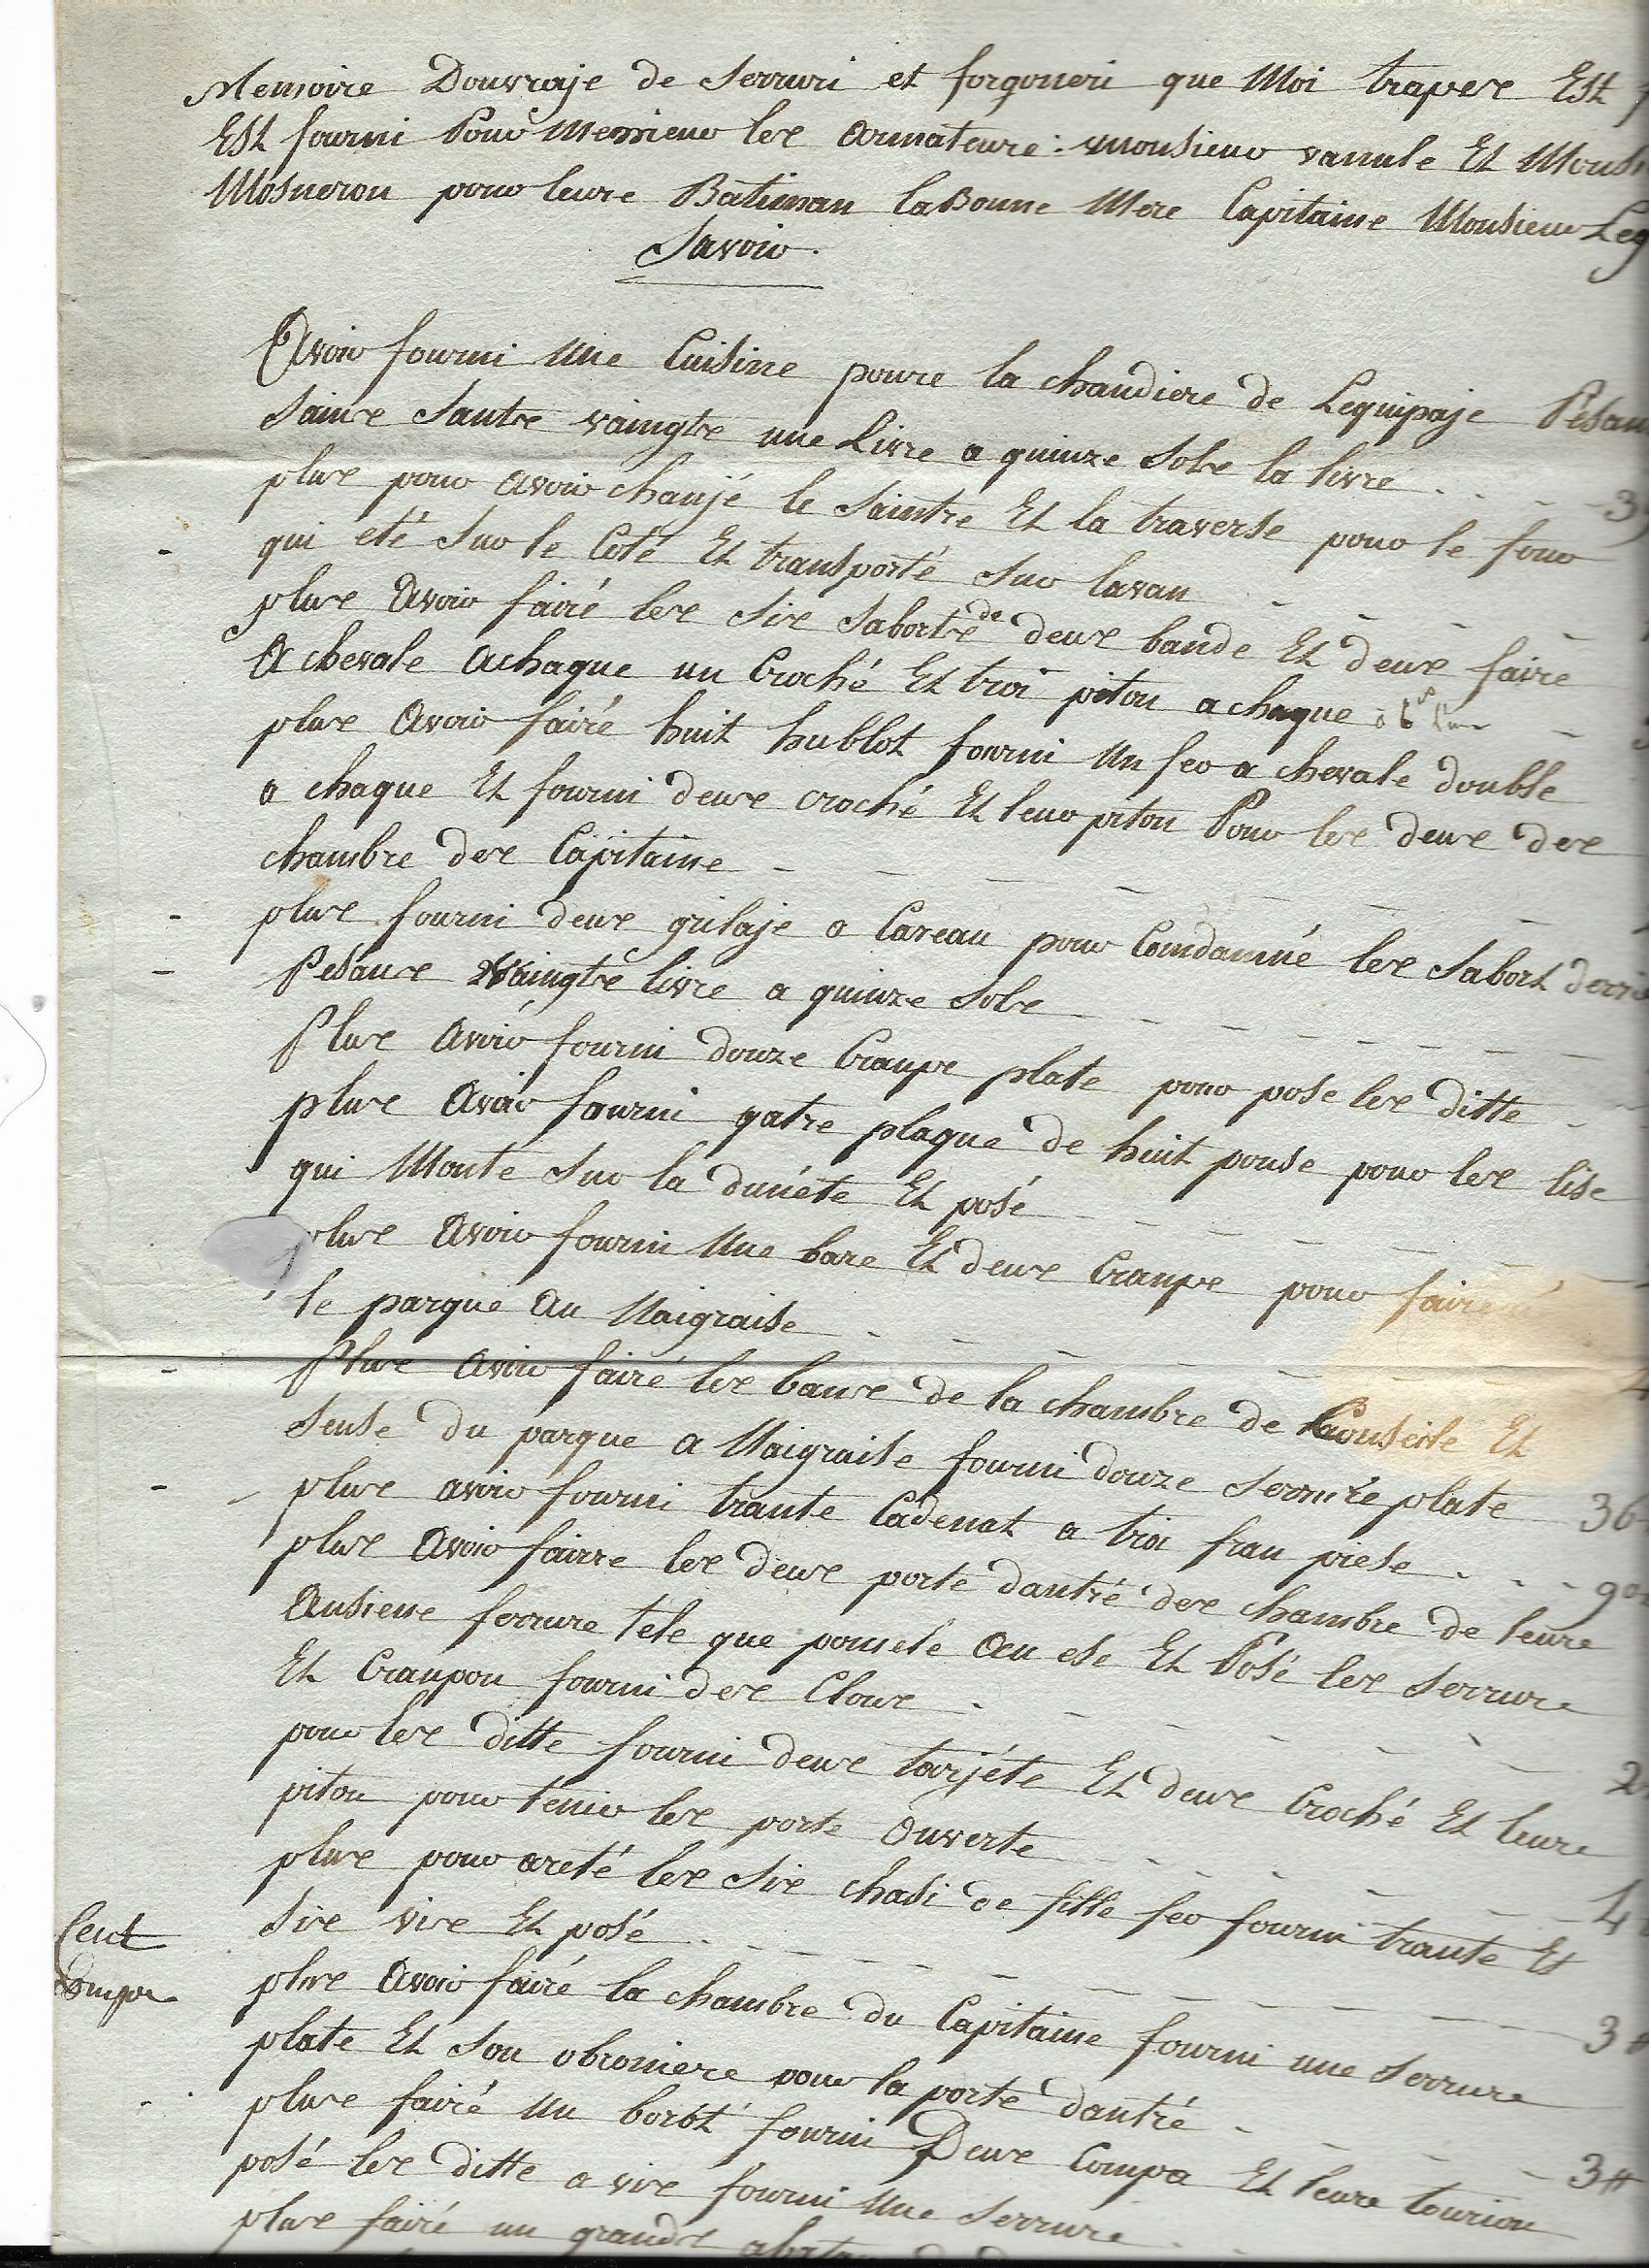 Memoire Douvraje de Serruri et forgoueri que Moi traper Est
Est fourni Pour Messieur les Armateure : Monsieur vanule Et Mons
Mosneron pour leure Batiman la Bonne Mere Capitaine Monsieur Leg
Savoir.
Avoir fourni Une Cuisine poure la chaudiere de Lequipaje Pesan
Sainc Santre vaingtre une Livre a quinze Sols la livre 3
plus pour avoir chanjé le Saintre Et la traverse pour le four
qui eté Sur le Coté Et transporté Sur lavan
plus Avoir fairé les Six Sabortre de deux bande Et deux faire
A chevale achaque un Croché Et troi piton a chaque
plus Avoir fairé huit hublot fourni Un fer a chevale double
a chaque Et fourni deux croché Et leur piton Pour les deux des
chambre des Capitaine
plus fourni deux grilaje a Careau pour Comdamné les Sabort derri
Pesans vaingtre livre a quinze Sols
Plus Avoir fourni douze Crampe plate pour pose les ditte
plus Avoir fourni qatre plaque de huit pouse pour les lise
qui Monte Sur la dunéte Et posé
plus Avoir fourni Une bare Et deux Crampe pour faire
le parque Au Naigraise
Plus Avoir fairé les banc de la chambre de Conseile Et
Seuse du parque a Naigraise fourni douze Serrure plate 36
plus avoir fourni trante Cadenat a troi fran piese 90
plus Avoir fairre les deux porte dantré des chambre de leure
Ansiene ferrure tele que pouseté Au ese Et Posé les Serrure
Et Crampon fourni des Cloux 2
pour les ditte fourni deux tarjéte Et deux Croché Et leure
piton pour tenir les porte Ouverte 4
plus pour areté les Six chasi de fille fer fourni trante Et
Six vire Et posé 3#
Cent
plus Avoir fairé la chambre du Capitaine fourni une Serrure
plate Et Son obroniere pour la porte dantré 3#
plus fairé Un borot fourni Deux Compa Et leure tourion
posé les ditte a vire fourni Une Serrure
plus fairé un grande